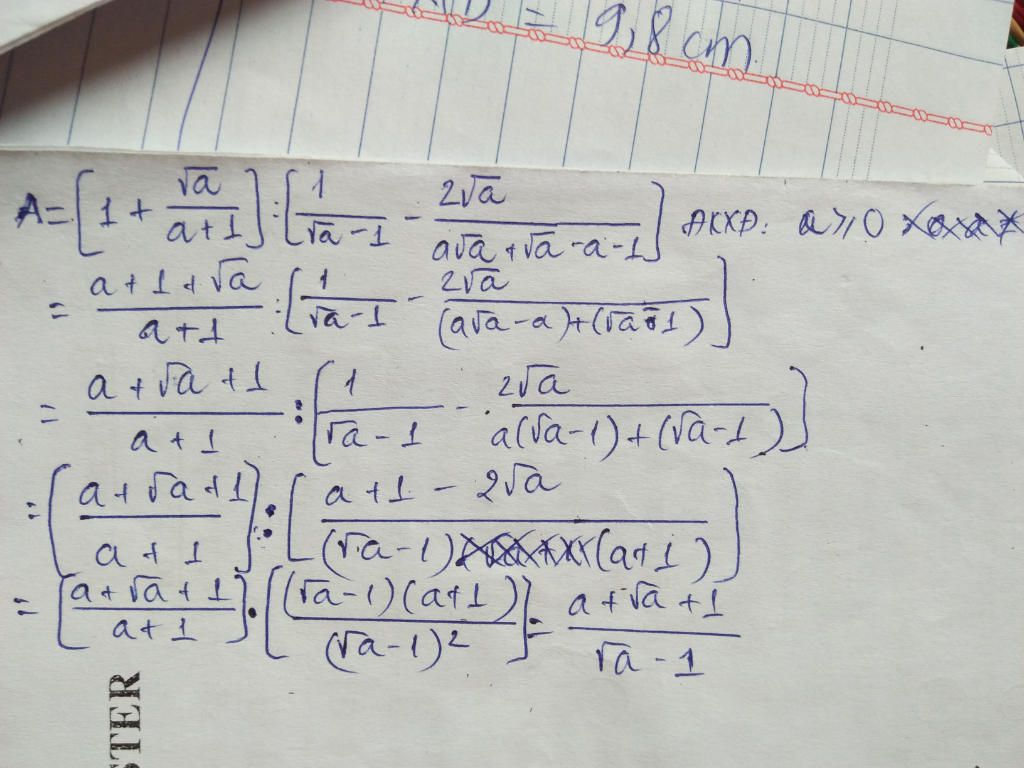 = 9,8 cm
A = [1 + √a/(a+1)] : [1/(√a-1) - 2√a/(a√a+√a-a-1)] ĐKXĐ: a ≥ 0
= (a+1+√a)/(a+1) : [1/(√a-1) - 2√a/((a√a-a)+(√a-1))]
= (a+√a+1)/(a+1) : [1/(√a-1) - 2√a/(a(√a-1)+(√a-1))]
= [(a+√a+1)/(a+1)] : [(a+1-2√a)/((√a-1)(a+1))]
= [(a+√a+1)/(a+1)] . [(√a-1)(a+1)/(√a-1)²] = (a+√a+1)/(√a-1)
STER